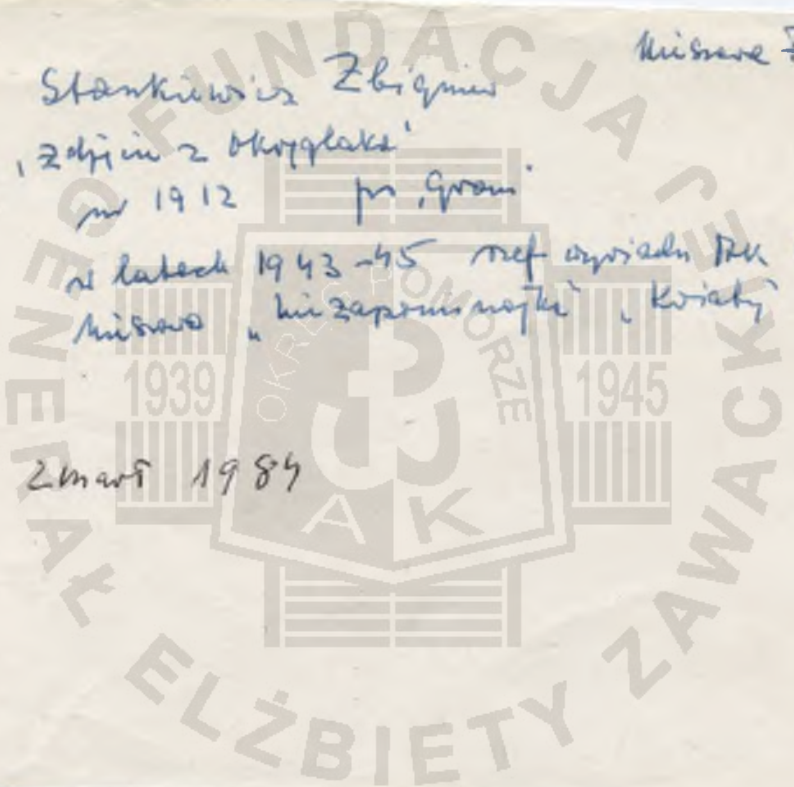 Mławа Z
Stankiewicz Zbigniew
"Zdjęcie z Okrąglaka"
ur 1912 ps "Grom"
w latach 1943-45 szef wywiadu
"Niezapominajki" "Kwiaty"
Zmarł 1984
FUNDACJA GENERAŁ ELŻBIETY ZAWACKIEJ
OKRĘG POMORZE
1939 1945
AK